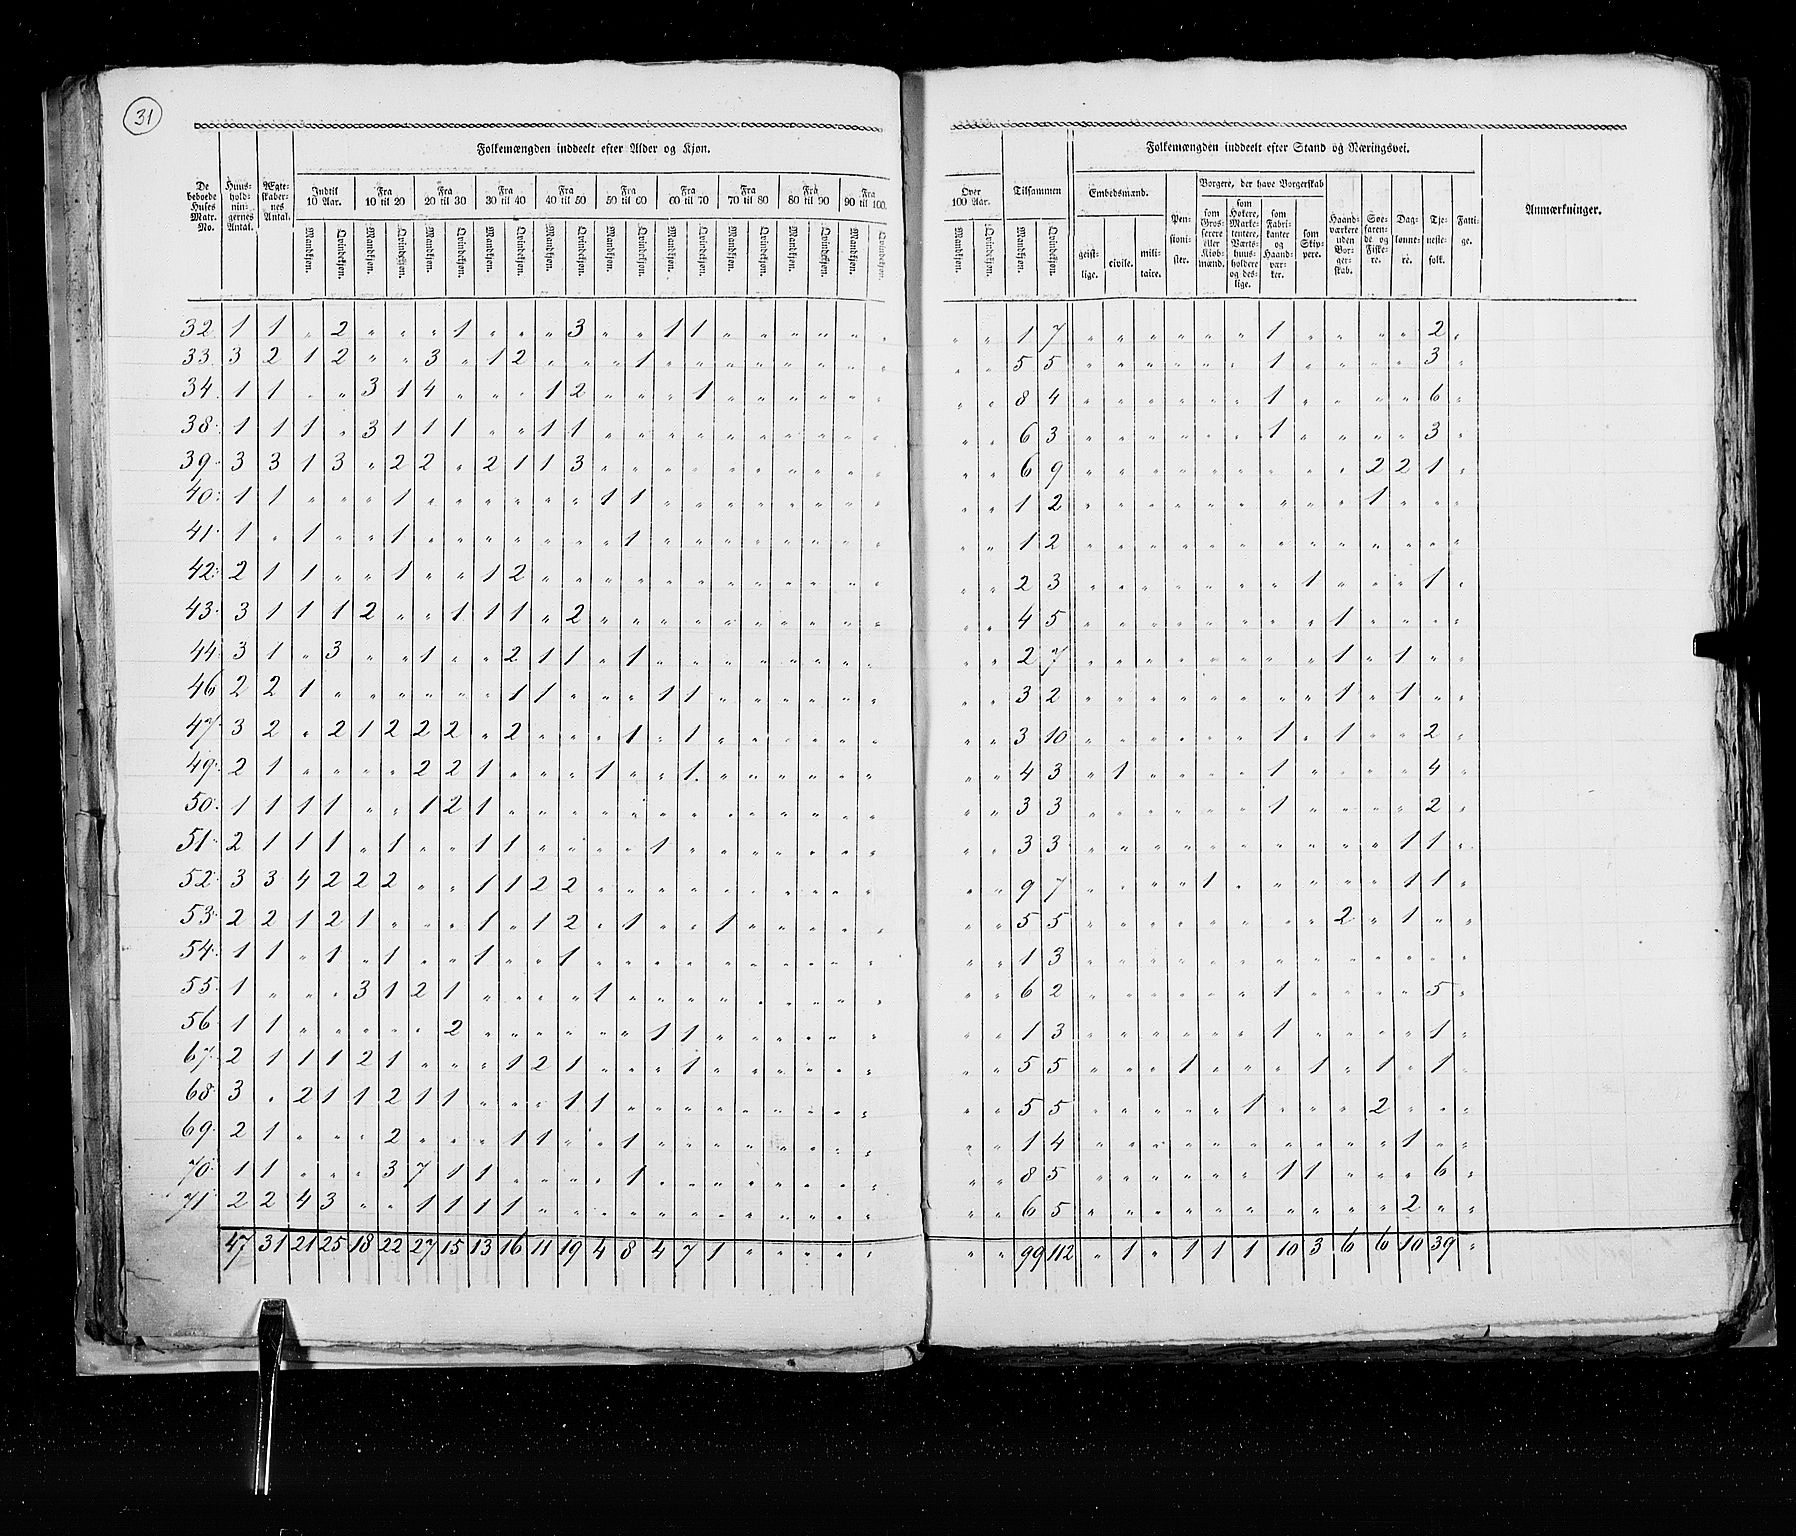 31
Folkemængden inddeelt efter Alder og Kjøn.
Folkemængden inddeelt efter Stand og Næringsvei.
De beboede Huses Matr. No. | Huus-hold-nin-gernes Antal. | Ægte-skaber-nes Antal. | Indtil 10 Aar. | Fra 10 til 20 | Fra 20 til 30 | Fra 30 til 40 | Fra 40 til 50 | Fra 50 til 60 | Fra 60 til 70 | Fra 70 til 80 | Fra 80 til 90 | Fra 90 til 100. | Over 100 Aar. | Tilsammen | Embedsmænd. | Pen-sioni-ster. | Borgere, der have Borgerskab | Haand-værkere uden Bor-ger-skab. | Søe-farende og Fiske-re. | Dag-lønne-re. | Tje-neste-folk. | Fatti-ge. | Anmærkninger.
Mandkjøn. Qvindekjøn. Mandkjøn. Qvindekjøn. Mandkjøn. Qvindekjøn. Mandkjøn. Qvindekjøn. Mandkjøn. Qvindekjøn. Mandkjøn. Qvindekjøn. Mandkjøn. Qvindekjøn. Mandkjøn. Qvindekjøn. Mandkjøn. Qvindekjøn. Mandkjøn. Qvindekjøn. Mandkjøn. Qvindekjøn. Mandkjøn. Qvindekjøn.
geist-lige. | civile. | mili-taire. | som Gros-serere eller Kiøb-mænd. | som Hokere, Marke-tentere, Værts-huus-holdere og des-lige. | som Fabri-kanter og Haand-vær-ker. | som Skip-pere.
32 1 1 „ 2 „ „ „ 1 „ „ „ 3 „ „ 1 1 „ „ „ „ „ „ „ „ 1 7 „ „ „ „ „ „ 1 „ „ „ „ 2 „
33 3 2 1 2 „ „ 3 „ 1 2 „ „ „ 1 „ „ „ „ „ „ „ „ „ „ 5 5 „ „ „ „ „ „ 1 „ „ „ „ 3 „
34 1 1 „ „ 3 1 4 „ „ „ 1 2 „ „ „ 1 „ „ „ „ „ „ „ „ 8 4 „ „ „ „ „ „ 1 „ „ „ „ 6 „
38 1 1 1 „ 3 1 1 1 „ „ 1 1 „ „ „ „ „ „ „ „ „ „ „ „ 6 3 „ „ „ „ „ „ 1 „ „ „ „ 3 „
39 3 3 1 3 „ 2 2 „ 2 1 1 3 „ „ „ „ „ „ „ „ „ „ „ „ 6 9 „ „ „ „ „ „ „ „ „ 2 2 1 „
40 1 1 „ „ „ 1 „ „ „ „ „ „ 1 1 „ „ „ „ „ „ „ „ „ „ 1 2 „ „ „ „ „ „ „ „ „ 1 „ „ „
41 1 „ 1 „ „ 1 „ „ „ „ „ „ „ 1 „ „ „ „ „ „ „ „ „ „ 1 2 „ „ „ „ „ „ „ „ „ „ „ „ „
42 2 1 1 „ „ 1 „ „ 1 2 „ „ „ „ „ „ „ „ „ „ „ „ „ „ 2 3 „ „ „ „ „ „ „ 1 „ „ „ 1 „
43 3 1 1 1 2 „ „ 1 1 1 „ 2 „ „ „ „ „ „ „ „ „ „ „ „ 4 5 „ „ „ „ „ „ „ „ 1 „ „ „ „
44 3 1 „ 3 „ „ 1 „ „ 2 1 1 „ 1 „ „ „ „ „ „ „ „ „ „ 2 7 „ „ „ „ „ „ „ „ 1 „ 1 „ „
46 2 2 1 „ „ „ „ „ „ 1 1 „ „ „ 1 1 „ „ „ „ „ „ „ „ 3 2 „ „ „ „ „ „ „ „ 1 „ 1 „ „
47 3 2 „ 2 1 2 2 2 „ 2 „ „ „ 1 „ 1 „ „ „ „ „ „ „ „ 3 10 „ „ „ „ „ „ 1 „ 1 „ „ 2 „
49 2 1 „ „ „ „ 2 2 1 „ „ „ 1 „ „ 1 „ „ „ „ „ „ „ „ 4 3 „ 1 „ „ „ „ 1 „ „ „ „ 4 „
50 1 1 1 1 „ „ 1 2 1 „ „ „ „ „ „ „ „ „ „ „ „ „ „ „ 3 3 „ „ „ „ „ „ 1 „ „ „ „ 2 „
51 2 1 1 1 „ 1 „ „ 1 1 „ „ „ „ 1 „ „ „ „ „ „ „ „ „ 3 3 „ „ „ „ „ „ „ „ „ „ 1 1 „
52 3 3 4 2 2 2 „ „ 1 1 2 2 „ „ „ „ „ „ „ „ „ „ „ „ 9 7 „ „ „ „ 1 „ „ „ „ „ 1 1 „
53 2 2 1 2 1 „ „ „ 1 „ 1 2 „ 1 „ „ 1 „ „ „ „ „ „ „ 5 5 „ „ „ „ „ „ „ „ 2 „ 1 „ „
54 1 1 „ 1 „ 1 „ „ 1 „ „ 1 „ „ „ „ „ „ „ „ „ „ „ „ 1 3 „ „ „ „ „ „ „ „ „ „ „ „ „
55 1 „ „ „ 3 1 2 1 „ „ „ „ 1 „ „ „ „ „ „ „ „ „ „ „ 6 2 „ „ „ „ „ „ 1 „ „ „ „ 5 „
56 1 1 „ „ „ „ „ 2 „ „ „ „ „ „ 1 1 „ „ „ „ „ „ „ „ 1 3 „ „ „ „ „ „ 1 „ „ „ „ 1 „
67 2 1 1 1 2 1 „ „ „ 1 2 1 „ „ „ 1 „ „ „ „ „ „ „ „ 5 5 „ „ „ 1 „ „ „ 1 „ 1 „ 1 „
68 3 „ 2 1 1 2 1 1 „ „ „ 1 1 „ „ „ „ „ „ „ „ „ „ „ 5 5 „ „ „ „ „ 1 „ „ „ 2 „ „ „
69 2 1 „ „ „ 2 „ „ „ 1 1 „ „ 1 „ „ „ „ „ „ „ „ „ „ 1 4 „ „ „ „ „ „ „ „ „ „ 1 „ „
70 1 1 „ „ „ 3 7 1 1 „ „ „ „ 1 „ „ „ „ „ „ „ „ „ „ 8 5 „ „ „ „ „ „ 1 1 „ „ „ 6 „
71 2 2 4 3 „ „ 1 1 1 1 „ „ „ „ „ „ „ „ „ „ „ „ „ „ 6 5 „ „ „ „ „ „ „ „ „ „ 2 „ „
47 31 21 25 18 22 27 15 13 16 11 19 4 8 4 7 1 „ „ „ „ „ „ „ 99 112 „ 1 „ 1 1 1 10 3 6 6 10 39 „